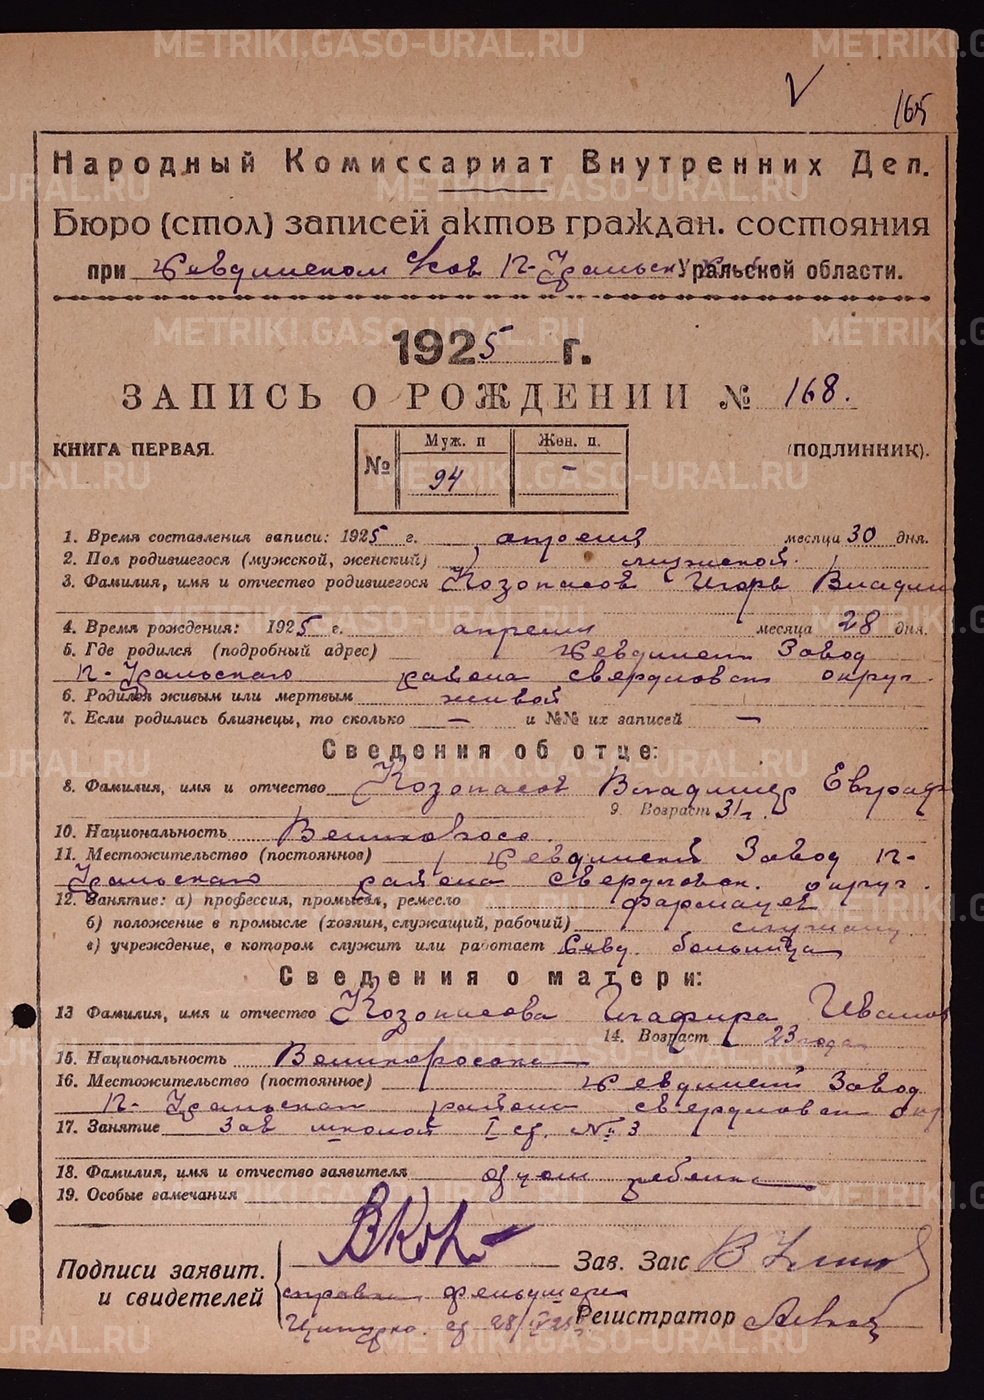 METRIKI.GASO-URAL.RU
165
Народный Комиссариат Внутренних Дел.
Бюро (стол) записей актов граждан. состояния
при Невдинском П-Уральск Уральской области.
1925 г.
ЗАПИСЬ О РОЖДЕНИИ № 168.
КНИГА ПЕРВАЯ.
(ПОДЛИННИК).
№ Муж. п 94 Жен. п. —
1. Время составления записи: 1925 г. апреля месяца 30 дня.
2. Пол родившегося (мужской, женский) мужской.
3. Фамилия, имя и отчество родившегося Козопасов Игорь Владим
4. Время рождения: 1925 г. апреля месяца 28 дня.
5. Где родился (подробный адрес) Завод
П-Уральскаго района свердловск округ.
6. Родился живым или мертвым живой
7. Если родились близнецы, то сколько — и №№ их записей —
Сведения об отце:
8. Фамилия, имя и отчество Козопасов Владимир Евграф
9. Возраст 31 г.
10. Национальность Великоросс.
11. Местожительство (постоянное) Завод П-
Уральскаго района свердловск. округ.
12. Занятие: а) профессия, промысел, ремесло фармацев
б) положение в промысле (хозяин, служащий, рабочий) служащ.
в) учреждение, в котором служит или работает больница
Сведения о матери:
13 Фамилия, имя и отчество Козопасова Глафира Иванов
14. Возраст 23 года
15. Национальность Великоросска
16. Местожительство (постоянное) Завод
П-Уральскаго района свердловск окр
17. Занятие Зав школой I ст. № 3
18. Фамилия, имя и отчество заявителя отец ребенка
19. Особые замечания
Подписи заявит.
и свидетелей
справка фельдшера
28/IV 25
Зав. Загс
Регистратор